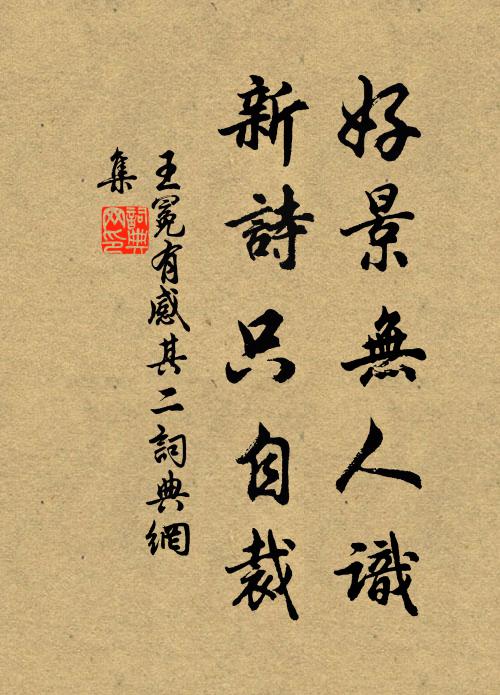 好景無人識
新詩只自裁
王冕有感其二詞典網
集
詞典网印